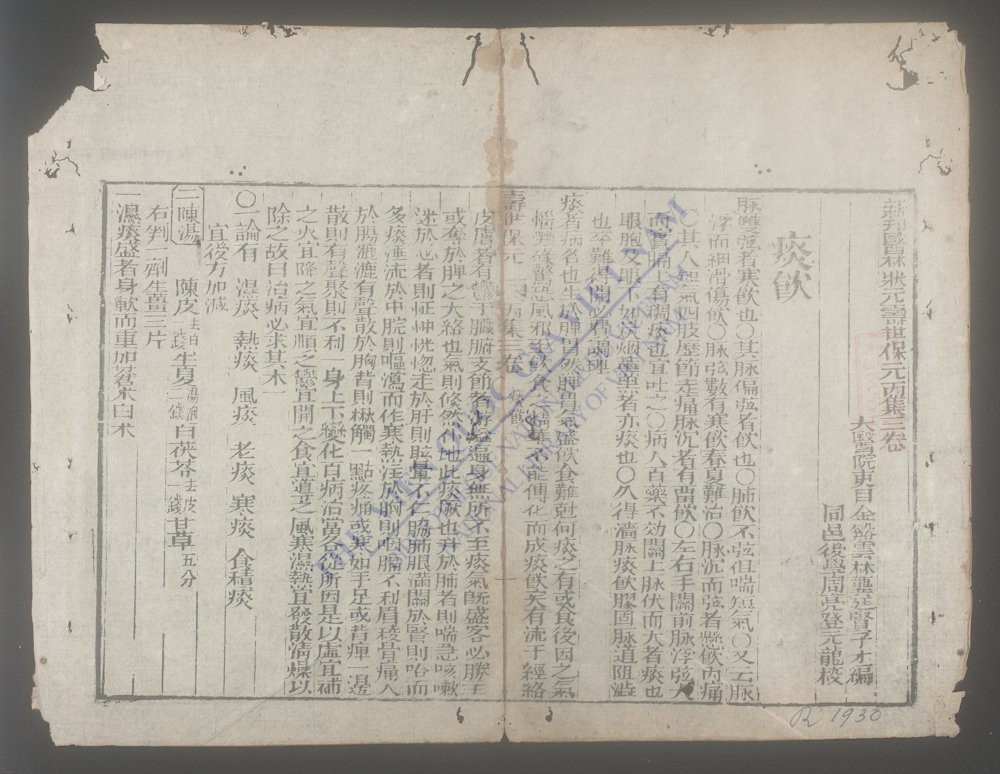 新刊醫林狀元壽世保元丙集三卷
太醫院吏目金谿雲林龔廷賢子才編
同邑後學周亮登元龍校
痰飲
脉雙弦者寒飲也〇其脉偏弦者飲也〇肺飲不弦但喘短氣〇又云脉
浮而細滑傷飲〇脉弦數有寒飲春夏難治〇脉沉而弦者懸飲內痛
〇其人短氣四肢歷節走痛脉沉者有留飲〇左右手關前脉浮弦大
而實者膈上有稠痰也宜吐之〇病人百藥不効關上脉伏而大者痰也
眼胞及眼下如烟熏黑者亦痰也〇久得濇脉痰飲膠固脉道阻澁
也卒難得開必費調理
痰者病名也生於脾胃然脾胃氣盛飲食難尅何痰之有或食後因之氣
惱勞碌驚恐風邪致飲食之精華不能傳化而成痰飲矣有流于經絡
壽世保元 丙集三卷 痰飲 一
皮膚者有 于臟腑支節者 遍身無所不至痰氣旣盛客必勝主
或奪於脾之大絡也氣則倐然 地此痰厥也升於肺者則喘急咳嗽
迷於心者則怔忡恍惚走於肝則眩暈不仁脇肋脹滿關於腎則咯而
多痰唾流於中脘則嘔瀉而作寒熱注於胸則咽膈不利眉稜骨痛入
於腸漉漉有聲散於胸背則揪觸一點疼痛或寒如手足或背痺一邊
散則有聲聚則不利一身上下變化百病治當各從所因是以虛宜補
之火宜降之氣宜順之鬱宜開之食宜導之風寒濕熱宜發散清燥以
除之故曰治病必求其本
〇一論有 濕痰 熱痰 風痰 老痰 寒痰 食積痰
宜後方加減
二陳湯 陳皮去白 錢 半夏湯泡二錢 白茯苓去皮一錢 甘草五分
右剉一劑生薑三片
一濕痰盛者身軟而重加蒼朮白朮
THE VIETNAMESE NÔM PRESERVATION FOUNDATION
NATIONAL LIBRARY OF VIETNAM
R. 1930